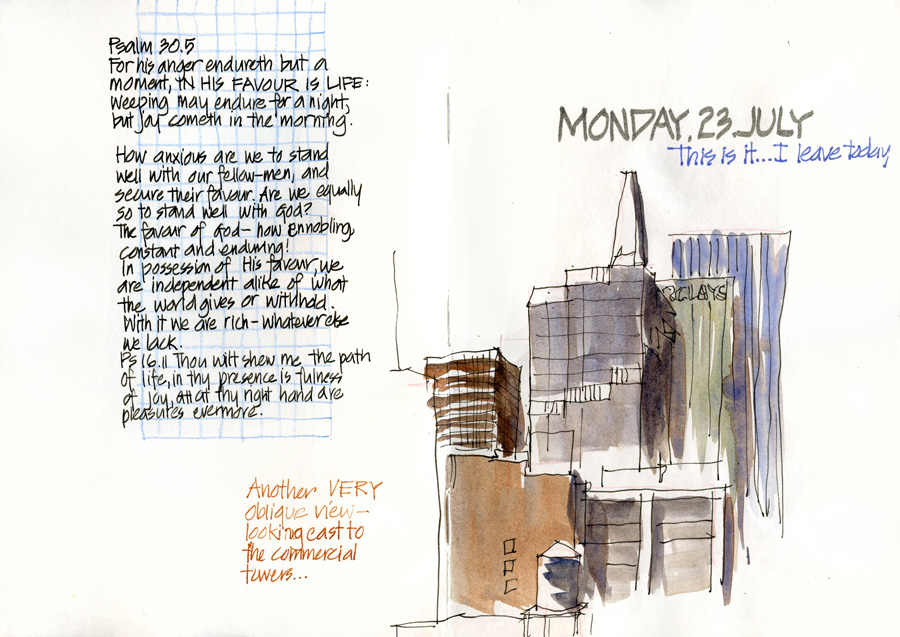 Psalm 30.5
For his anger endureth but a
moment, IN HIS FAVOUR IS LIFE:
weeping may endure for a night,
but joy cometh in the morning.
How anxious are we to stand
well with our fellow-men, and
secure their favour. Are we equally
so to stand well with God?
The favour of God - how ennobling,
constant and enduring!
In possession of His favour, we
are independent alike of what
the world gives or withhold.
With it we are rich - whatever else
we lack.
Ps 16.11 Thou wilt shew me the path
of life, in thy presence is fulness
of joy, at thy right hand are
pleasures evermore.
MONDAY, 23 JULY
This is it... I leave today
BARCLAYS
Another VERY
oblique view -
looking east to
the commercial
towers...